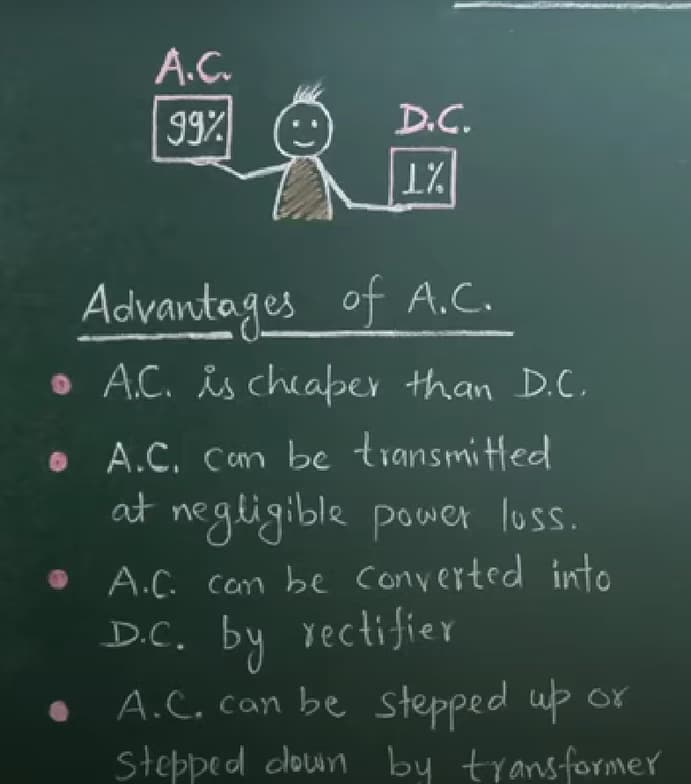 A.C.
99%
D.C.
1%
Advantages of A.C.
A.C. is cheaper than D.C.
A.C. can be transmitted
at negligible power loss.
A.C. can be converted into
D.C. by rectifier
A.C. can be stepped up or
stepped down by transformer